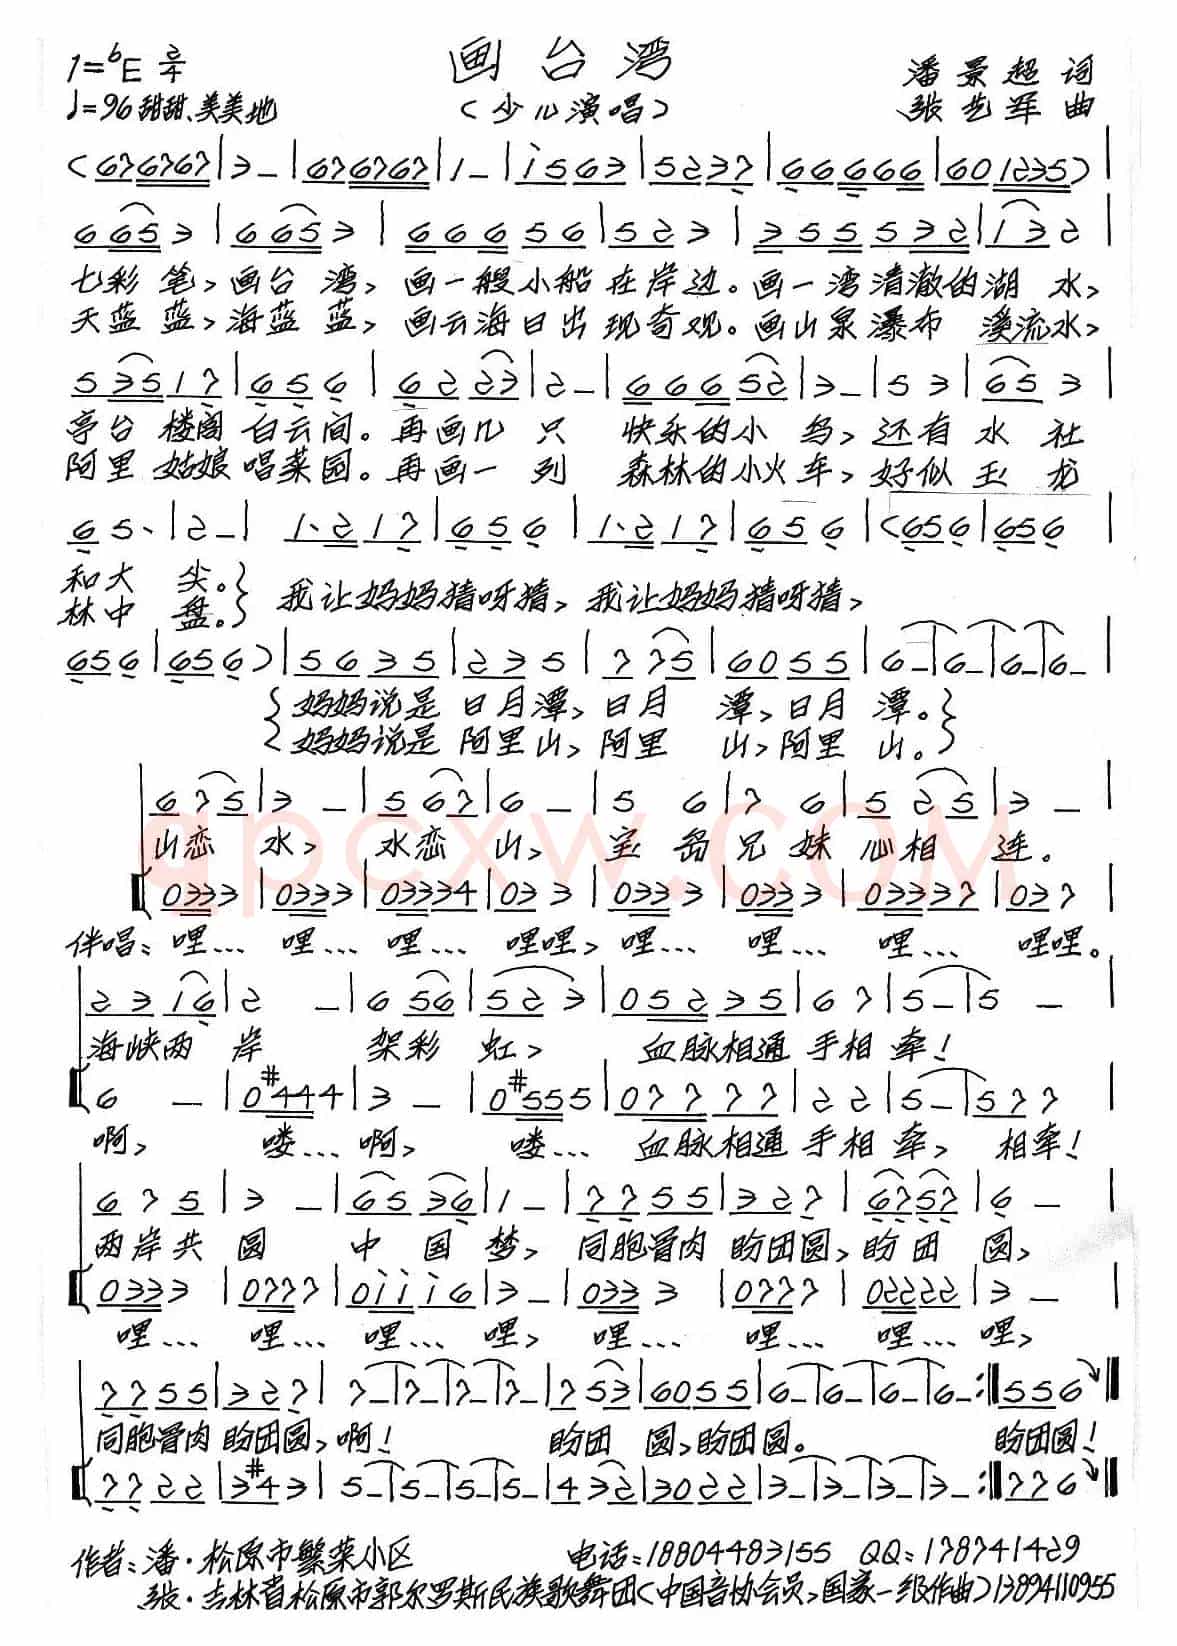 1=♭E 2/4
画台湾
潘景超 词
♩=96 甜甜、美美地
(少儿演唱)
张艺军 曲
(67 6767 | 3 - | 67 6767 | 1 - | i 5 6 3 | 5 2 3 7 | 6 6 6 6 6 | 6 0 1235) |
6 65 3 | 6 65 3 | 6 6 6 5 6 | 5 2 3 | 3 5 5 5 3 2 | 1 3 2 |
七彩笔,画台湾,画一艘小船在岸边。画一湾清澈的湖水,
天蓝蓝,海蓝蓝,画云海日出现奇观。画山泉瀑布溪流水,
5 3 5 1 7 | 6 5 6 | 6 2 2 3 | 2 - | 6 6 6 5 2 | 3 - | 5 3 | 6 5 3 |
亭台楼阁白云间。再画几只快乐的小鸟,还有水社
阿里姑娘唱菜园。再画一列森林的小火车,好似玉龙
6 5. | 2 - | 1. 2 1 7 | 6 5 6 | 1. 2 1 7 | 6 5 6 | (6 5 6 | 6 5 6
和大尖。}我让妈妈猜呀猜,我让妈妈猜呀猜,
林中盘。}
6 5 6 | 6 5 6) | 5 6 3 5 | 2 3 5 | 7 7 5 | 6 0 5 5 | 6 - | 6 - | 6 - | 6 - |
{妈妈说是日月潭,日月潭,日月潭。}
{妈妈说是阿里山,阿里山,阿里山。}
6 7 5 | 3 - | 5 6 7 | 6 - | 5 6 | 7 6 | 5 2 5 | 3 -
山恋水,水恋山,宝岛兄妹心相连。
0 3 3 3 | 0 3 3 3 | 0 3 3 3 4 | 0 3 3 | 0 3 3 3 | 0 3 3 3 | 0 3 3 3 7 | 0 3 7 |
伴唱:哩… 哩… 哩… 哩哩,哩… 哩… 哩… 哩哩。
2 3 1 6 | 2 - | 6 5 6 | 5 2 3 | 0 5 2 3 5 | 6 7 | 5 - | 5 - |
海峡两岸架彩虹,血脉相通手相牵!
6 - | 0 #4 4 4 | 3 - | 0 #5 5 5 | 0 7 7 7 7 | 2 2 | 5 - | 5 7 7 |
啊,喽…啊,喽… 血脉相通手相牵,相牵!
6 7 5 | 3 - | 6 5 3 6 | 1 - | 7 7 5 5 | 3 2 7 | 6 7 5 7 | 6 - |
两岸共圆中国梦,同胞骨肉盼团圆,盼团圆,
0 3 3 3 | 0 7 7 7 | 0 i i i 6 | 3 - | 0 3 3 3 | 0 7 7 7 | 0 2 2 2 2 | 3 - |
哩… 哩… 哩… 哩,哩… 哩… 哩… 哩,
7 7 5 5 | 3 2 7 | 7 - | 7 - | 7 - | 7 - | 7 5 3 | 6 0 5 5 | 6 - | 6 - | 6 - | 6 - :‖ 5 5 6 ‖
同胞骨肉盼团圆,啊!盼团圆,盼团圆。盼团圆!
7 7 2 2 | 3 #4 3 | 5 - | 5 - | 5 - | 5 - | 4 3 2 | 3 0 2 2 | 3 - | 3 - | 3 - | 3 - :‖ 7 7 6 ‖
作者:潘·松原市繁荣小区 电话:18804483155 QQ:178741429
张·吉林省松原市郭尔罗斯民族歌舞团(中国音协会员,国家一级作曲)13894110955
qpcxw.com